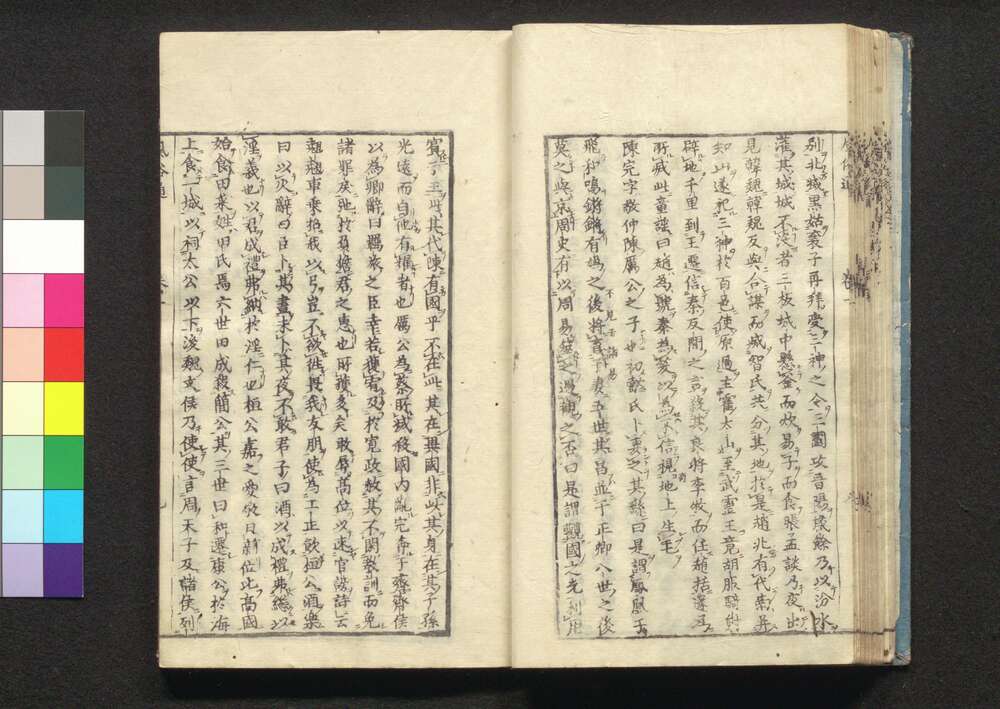 別北城黒姑襄子再拜受三神之令三國攻晉陽歲餘乃以汾水
灌其城城不沒者三板城中懸釜而炊易子而食張孟談乃夜出
見韓魏韓魏反與合謀而滅智氏共分其地於是趙北有代南并
知山遂祀三神於百邑使原過主霍太山至武靈王竟胡服騎射
辟地千里到王遷信秦反間之言殺其良將李牧而任趙括遂
所滅此童謠曰趙為號秦為笑以為不信視地上生毛
陳完字敬仲陳厲公之子也初懿氏卜妻之其繇曰是謂鳳凰于
飛和鳴鏘鏘有媯之後將育于姜五世其昌並于正卿八世之後
莫之與京周史有以周易筮之遇觀之否曰是謂觀國之光利用
賓于王此其代陳有國乎不在此其在異國非此其身在其子孫
光遠而自他有耀者也厲公為蔡所滅後國內亂完奔于齊齊侯
以為卿辭曰羈旅之臣幸若獲宥及於寬政赦其不閑教訓而免
諸罪戾弛於負擔君之惠也所獲多矣敢辱高位以速官謗詩云
翹翹車乘招我以弓豈不欲往畏我友朋使為工正飲桓公酒樂
曰以火辭曰臣卜其晝未卜其夜不敢君子曰酒以成禮弗繼以
淫義也以君成禮弗納於淫仁也桓公嘉之愛敬日新位比高國
始食田菜姓田氏焉六世田成殺簡公其三世曰和遷康公於海
上食一城以祠太公以下後魏文侯乃使使言周天子及諸侯列